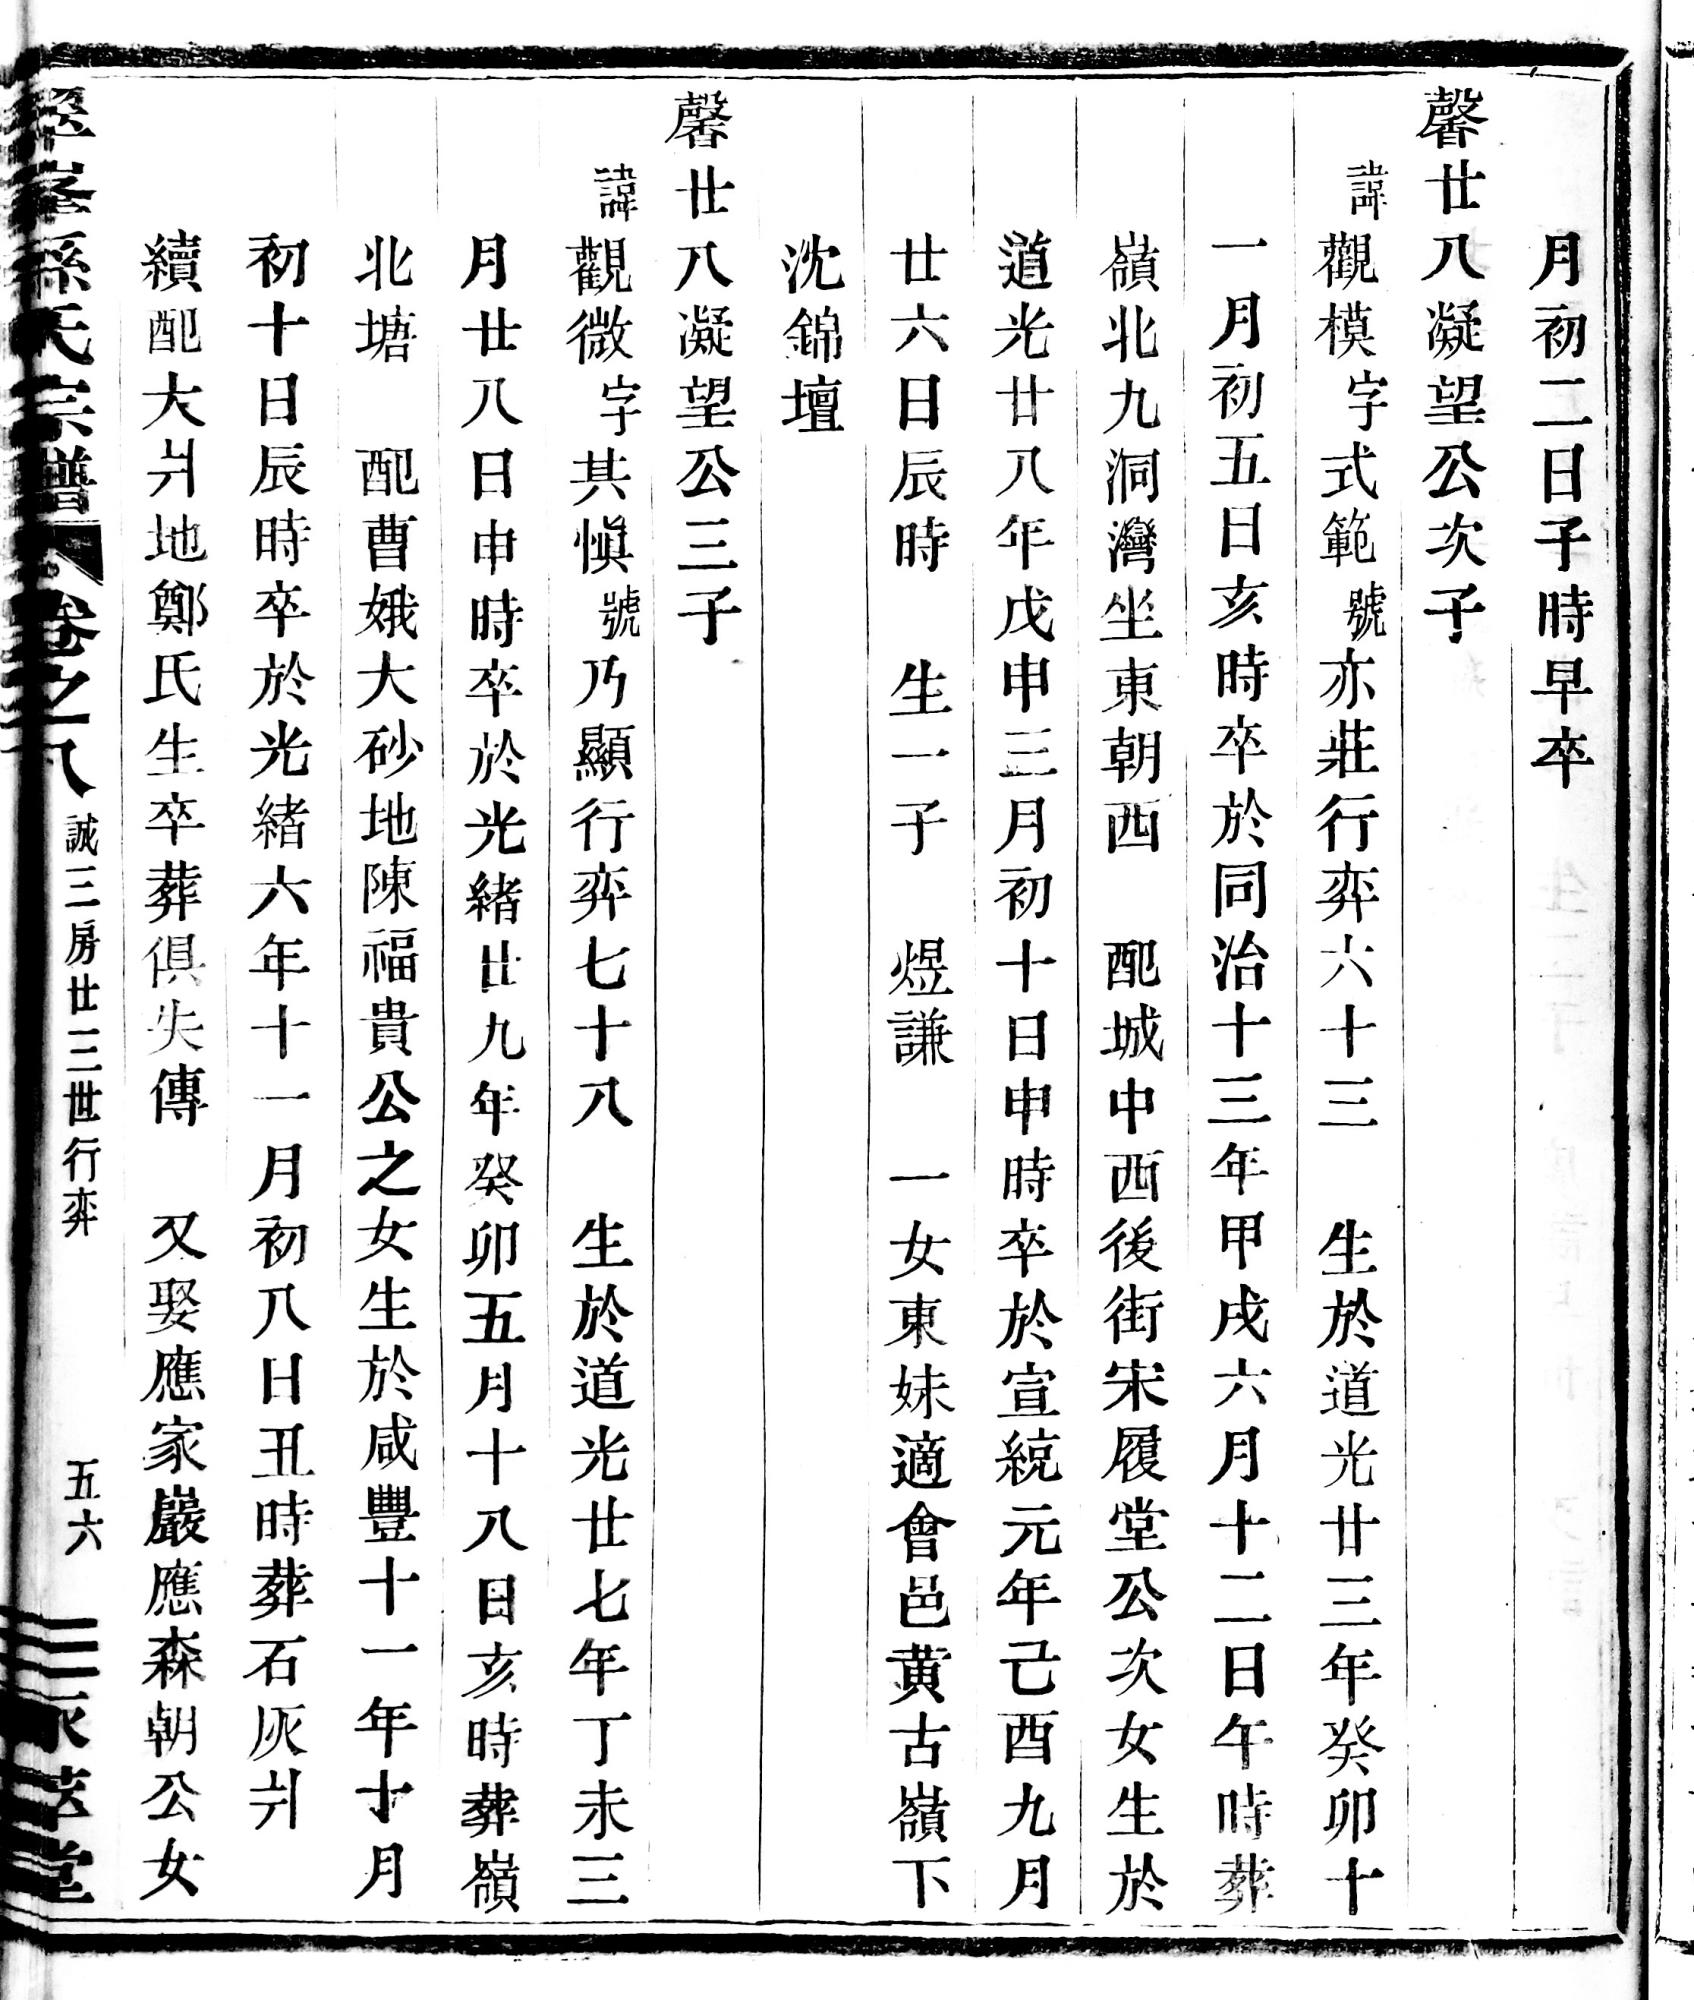 月初二日子時早卒
馨廿八凝望公次子
諱觀模字式範號亦莊行弈六十三　生於道光廿三年癸卯十
一月初五日亥時卒於同治十三年甲戌六月十二日午時葬
嶺北九洞灣坐東朝西　配城中西後街宋履堂公次女生於
道光廿八年戊申三月初十日申時卒於宣統元年己酉九月
廿六日辰時　生一子　煜謙　一女東妹適會邑黃古嶺下
沈錦壇
馨廿八凝望公三子
諱觀微字其愼號乃顯行弈七十八　生於道光廿七年丁未三
月廿八日申時卒於光緒廿九年癸卯五月十八日亥時葬嶺
北塘　配曹娥大砂地陳福貴公之女生於咸豐十一年十月
初十日辰時卒於光緒六年十一月初八日丑時葬石灰爿
續配大爿地鄭氏生卒葬俱失傳　又娶應家巖應森朝公女
峯孫氏宗譜　卷之八　誠三房廿三世行弈　五六　永萃堂